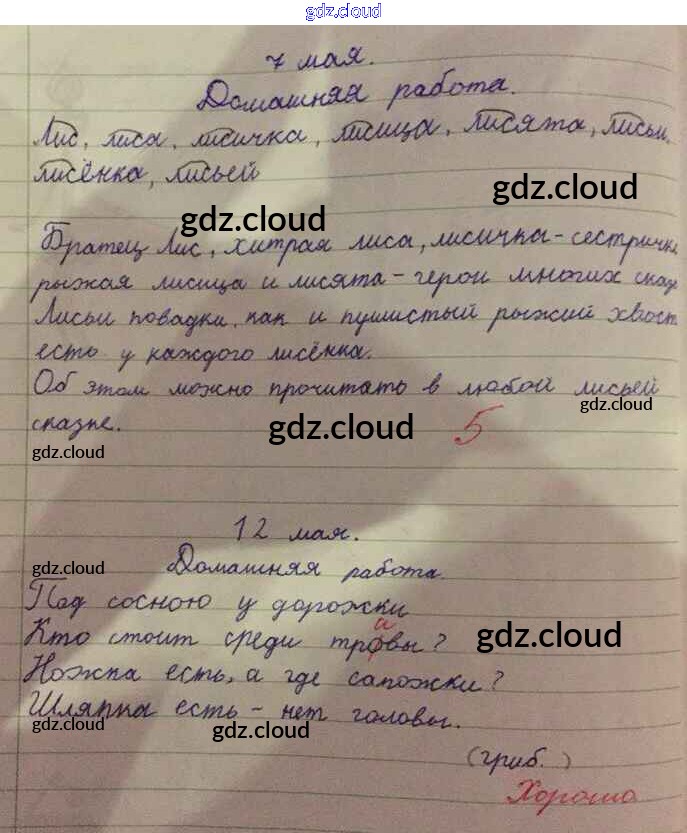 gdz.cloud
7 мая.
Домашняя работа.
Лис, лиса, лисичка, лисица, лисята, лисьи,
лисёнка, лисьей
gdz.cloud
gdz.cloud
Братец Лис, хитрая лиса, лисичка-сестричк
рыжая лисица и лисята - герои многих сказ
Лисьи повадки, как и пушистый рыжий хвост
есть у каждого лисёнка.
Об этом можно прочитать в любой лисьей
gdz.cloud
сказке.
gdz.cloud
5
gdz.cloud
12 мая.
Домашняя работа.
gdz.cloud
Под сосною у дорожки
а
Кто стоит среди тровы?
gdz.cloud
Ножка есть, а где сапожки?
Шляпка есть - нет головы.
gdz.cloud
gdz.cloud
(гриб.)
Хорошо
gdz.cloud